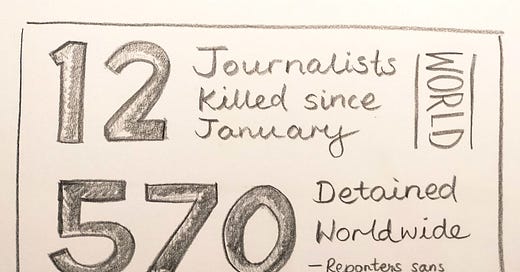 12 Journalists
Killed since
January
WORLD
570 Detained
Worldwide
– Reporters sans